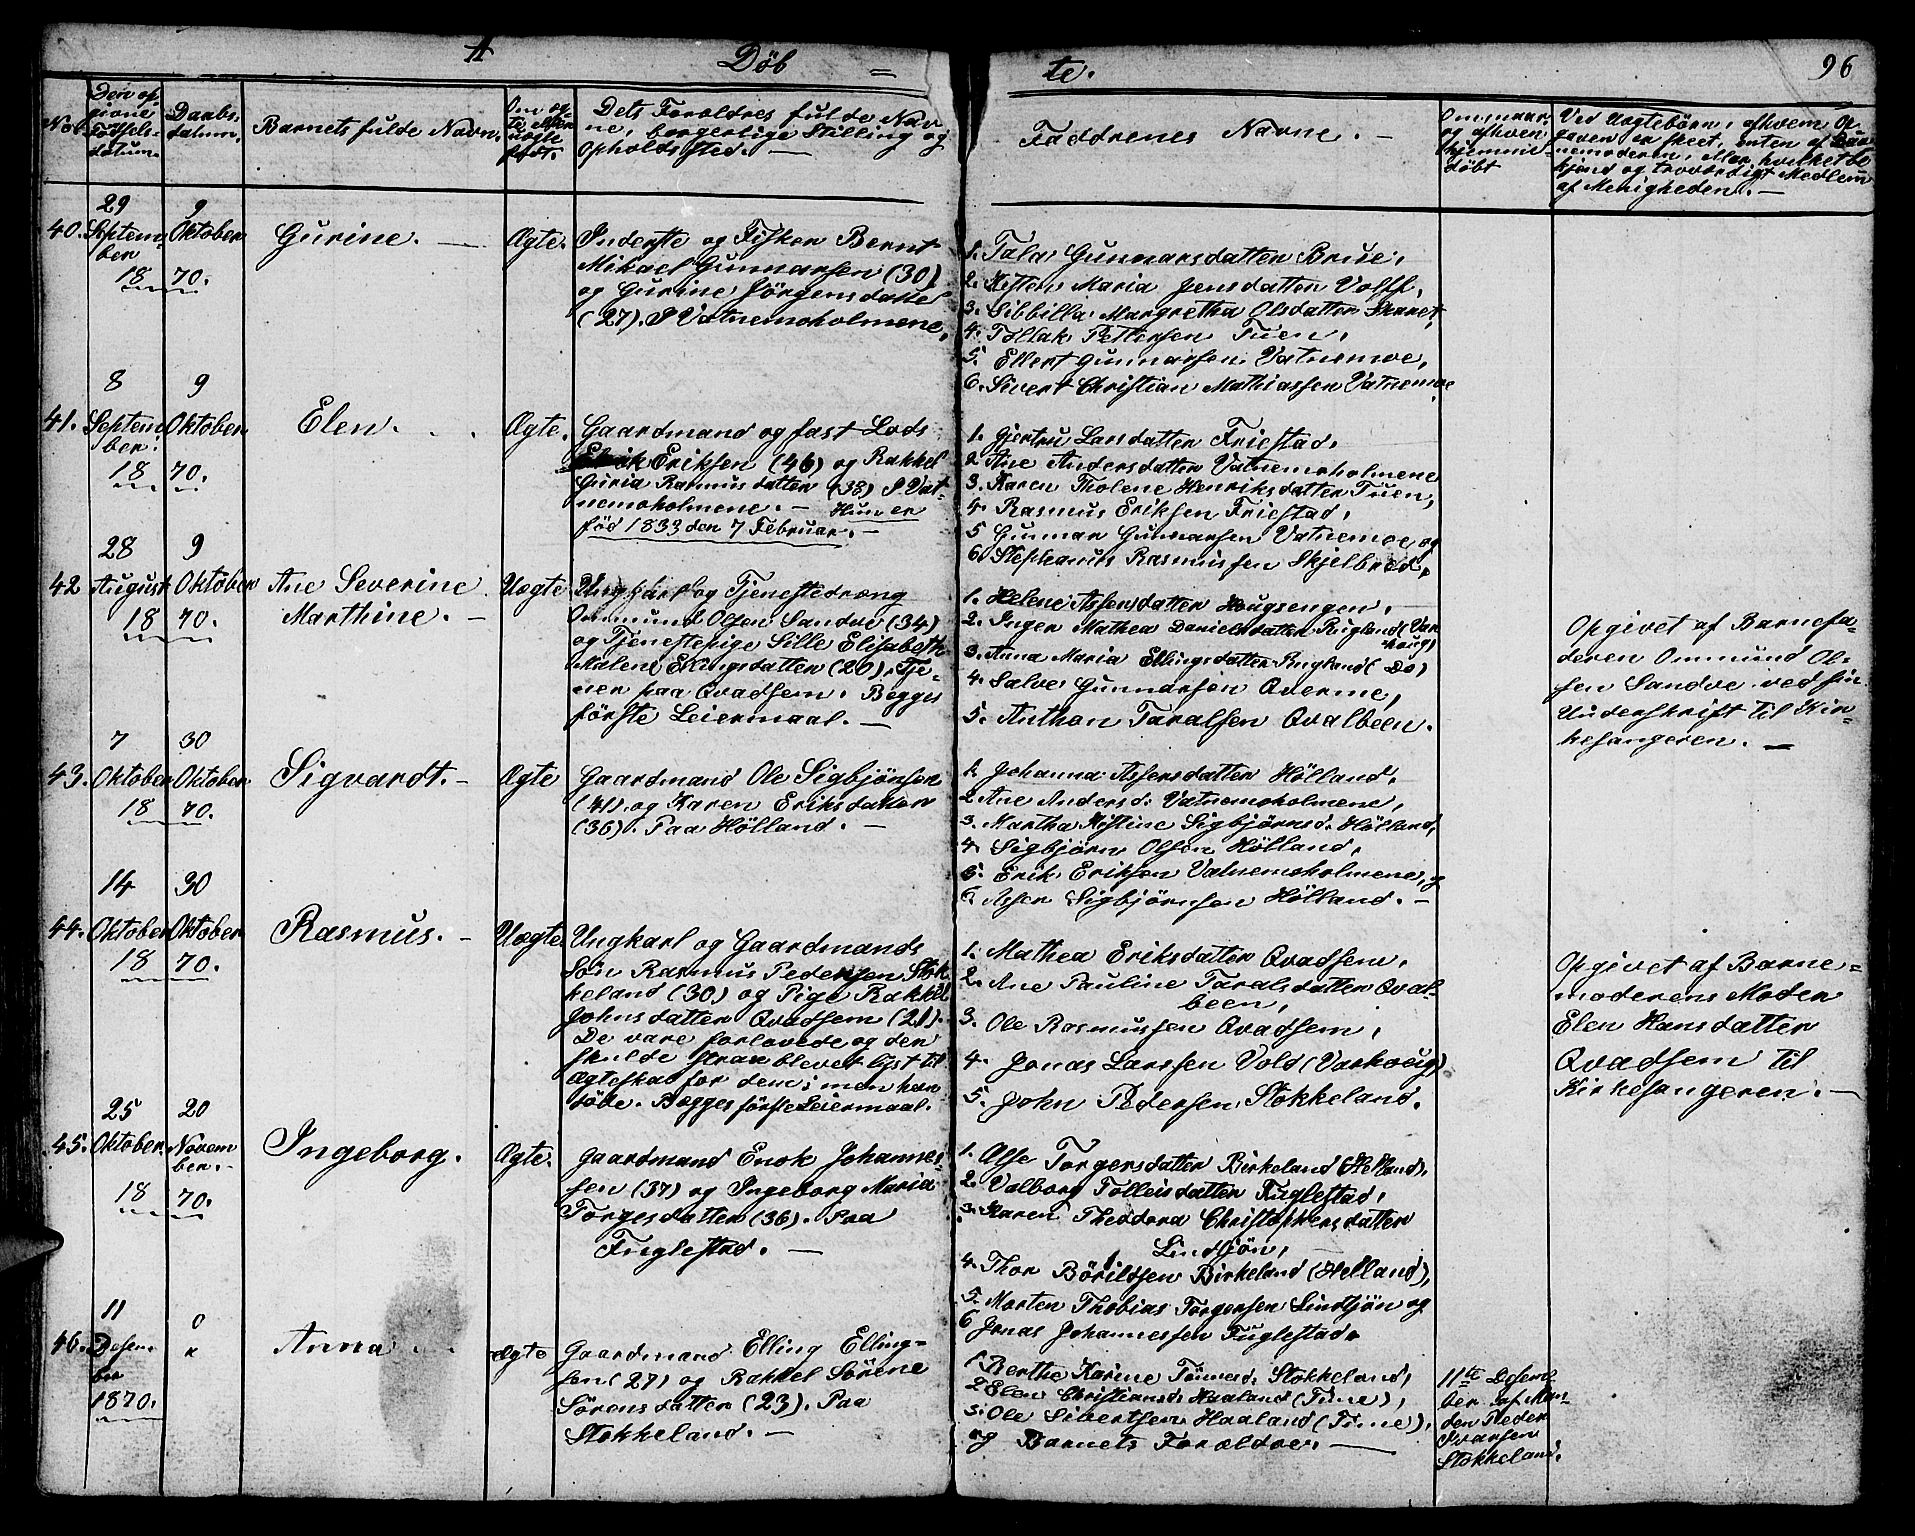 A Döb = te. 96
No.
Den op-
givne
Födsels-
datum.
Daabs-
datum.
Barnets fulde Navn.
Om æg-
te eller
uægte
födt.
Dets Foreldres fulde Nav-
ne, borgerlige Stilling og
Opholdssted. —
Faddrenes Navne. —
Om naar
og afhvem
hjemme-
döbt
Ved Uægtebörn, afhvem Op-
gaven er skeet, enten af Bar-
nemoderen, eller hvilket be-
kjend og troværdigt Medlem
af Menigheden. —
40.
29
Septem-
ber
9
Oktober
18 70.
Gurine. —
Ægte.
Inderste og Fisker Bernt
Mikael Gunnarsen (30)
og Gurine Jörgensdatter
(27). P Vatnemoholmene,
1. Tala Gunnarsdatter Brue,
2. Kisten Maria Jensdatter Volff,
3. Sibbilla Margretha Olsdatter
4. Tollak Pettersen Tuen,
5. Ellert Gunnarsen Vatnemoe,
6. Sivert Christian Mathiassen Vatnemoe
41.
8
Septem-
ber.
9
Oktober
18 70.
Elen. . .
Ægte.
Gaardmand og fast Lods
Eriksen (46) og Rakkel
Guria Rasmusdatter (38) P Vat-
nemoholmene. — Hun er
föd 1833 den 7 Februar. —
1. Gjertru Larsdatter Friestad,
2 Ane Andersdatter Vatnemoholmene
3. Karen Tholene Henriksdatter Tuen,
4. Rasmus Eriksen Friestad,
5 Gunnar Gunnarsen Vatnemoe og
6. Stephanus Rasmussen Skjelbred,
42
28
August
9
Oktober
18 70.
Ane Severine
Marthine. —
Uægte
Ungkarl og Tjenestedræng
Ommund Olsen Sandve (34)
og Tjenestepige Sille Elisabeth
Malene Ellingsdatter (20). Tje-
ner paa Qvadsem. Begges
förste Leiermaal. —
1. Helene Assersdatter Hougsengen,
2. Inger Mathea Danielsdatter Rugland (Var-
houg)
3. Anna Maria Ellingsdatter Rugland (Do)
4. Salve Gunnarsen Qverme,
5. Anthon Taralsen Qvalbeen.
Opgivet af Barnefa-
deren Ommund Ol-
sen Sandve ved sin
Underskrift til Kir-
kesangeren. —
43.
7
Oktober
30
Oktober
18 70.
Sigvardt. —
Ægte
Gaardmand Ole Sigbjönsen
(41). og Karen Eriksdatter
(36). Paa Hölland. —
1. Johanna Assersdatter Hölland,
2. Ane Andersd. Vatnemoholmene,
3. Martha Kistine Sigbjörnsd. Hölland,
4. Sigbjörn Olsen Hölland,
5. Erik Eriksen Vatnemoholmene, og
6. Asser Sigbjörnsen Hölland. —
44.
14
Oktober
30
Oktober
18 70.
Rasmus. —
Uægte
Ungkarl og Gaardmands
Sön Rasmus Pedersen Stok-
keland (30) og Pige Rakkel
Johnsdatter Qvadsem (21).
De vare forlovede og der
skulde strax blevet lyst til
Ægteskab for dem; men han
döde. Begges förste Leiermaal.
1. Mathea Eriksdatter Qvadsem,
2. Ane Pauline Taralsdatter Qval-
been,
3. Ole Rasmussen Qvadsem,
4. Jonas Larssen Vold (Varhoug)
5. John Pedersen Stokkeland.
Opgivet af Barne-
moderens Moder
Elen Hansdatter
Qvadsem til
Kirkesangeren. —
45.
25
Oktober
20
Novem-
ber.
18 70.
Ingeborg.
Ægte.
Gaardmand Enok Johannes-
sen (37) og Ingeborg Maria
Torgersdatter (36). Paa
Fuglestad. —
1. Else Torgersdatter Birkeland (Helland),
2. Valborg Tolleisdatter Fuglestad,
3. Karen Theodora Christophersdatter
Lindtjön,
4. Thor Böriltsen Birkeland (Helland),
5. Morten Thobias Torgersen Lindtjön og
6 Jonas Johannessen Fuglestad.
46.
11
Desem-
ber
1870.
Anna
Ægte
Gaardmand Elling Elling-
sen (27) og Rakkel Sörene
Sörensdatter (23). Paa
Stokkeland. —
1. Berthe Karine Tönnesd. Stokkeland,
2 Elen Christiansd. Haaland (Time),
3. Ole Sivertsen Haaland (Time),
og Barnets Foraldre. —
11te Desem-
ber af Man-
den Peder
Ivarsen
Stokkeland.